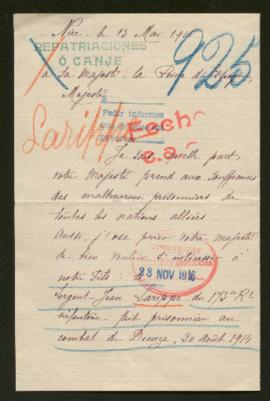 Nice le 13 Mai 191
REPATRIACIONES
Ó CANJE
925
a Sa Majesté le Roi d'Espagne
Majesté
Pedir informes
Larippe
Fech
c.a
Je sais quelle part
votre Majesté prend aux souffrances
des malheureux prisonniers de
toutes les nations alliées
Aussi, j'ose prier votre majesté
de bien vouloir s'intéresser à
notre fils:
28 NOV 1916
Sergent Jean Larippe du 173e Rt
infanterie fait prisonnier au
combat de Dieuze, 20 août 1914